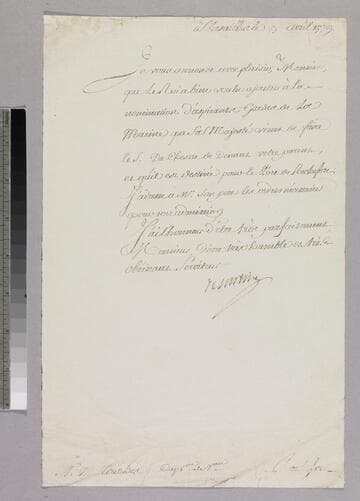 à Versailles le avril
Je vous annonce avec plaisir, Monsieur,
que le Roi a bien voulu ajouter à la
nomination d'aspirants Gardes de la
Marine que Sa Majesté vient de faire
le S. De votre parent,
et qu'il est destiné pour le Port de Rochefort.
J'adresse à Mr. les ordres nécessaires
pour son admission
J'ai l'honneur d'être très parfaitement
Monsieur Votre très humble et très
obéissant Serviteur